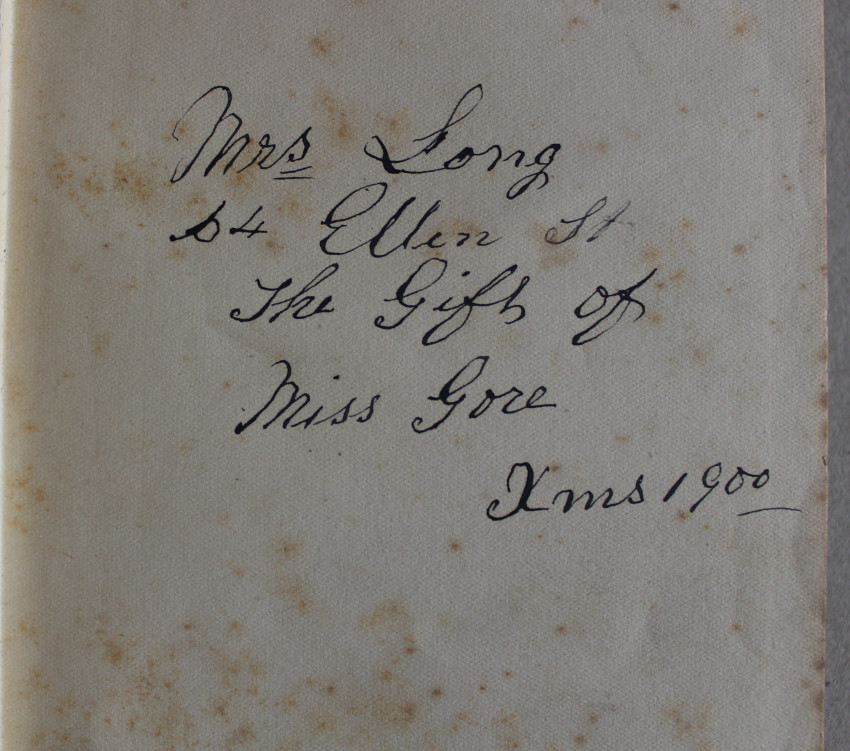 Mrs Long
54 Ellen St
The Gift of
Miss Gore
Xms 1900